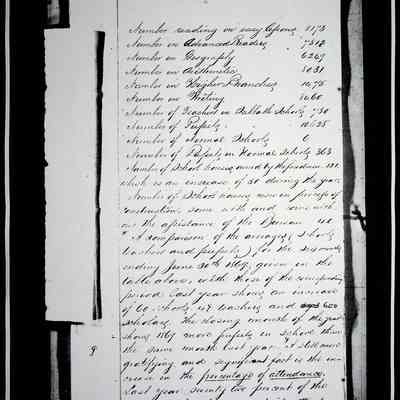 Number reading in easy lessons 1173
Number in Advanced Readers
Number in Geography
Number in Arithmetic 5031
Number in Higher Branches
Number in Writing
Number of Teachers in Sabbath Schools
Number of Pupils
Number of Normal Schools 6
Number of Pupils in Normal Schools 363
Number of School houses owned by the freedmen
which is an increase of 20 during the year.
Number of School houses now in process of
construction some with and some with-
out the assistance of the Bureau
A comparison of the averages (Schools
teachers and pupils) for the six months
ending June 30th 1869, given in the
table above, with those of the corresponding
period last year shows an increase
of 60 Schools, 47 teachers and 600
scholars. The closing month of the year
shows 1169 more pupils in school than
the same month last year. A still more
9 gratifying and significant fact is the in-
crease in the percentage of attendance.
Last year seventy two percent of the